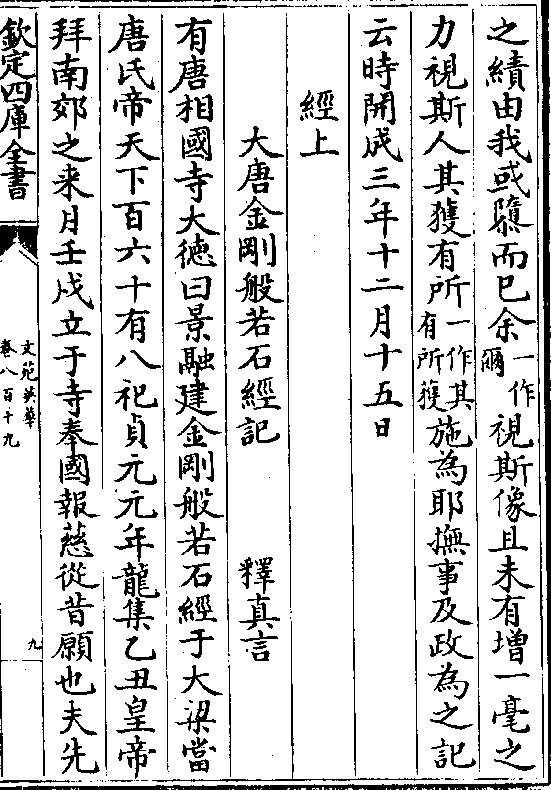 之績由我或隳而已余一作爾視斯像且未有增一毫之
力視斯人其獲有所一作其有所獲施為耶撫事及政為之記
云時開成三年十二月十五日
經上
大唐金剛般若石經記　釋真言
有唐相國寺大德曰景融建金剛般若石經于大梁當
唐氏帝天下百六十有八祀貞元元年龍集乙丑皇帝
拜南郊之来月壬戌立于寺奉國報慈從昔願也夫先
欽定四庫全書
文苑英華
卷八百十九
九